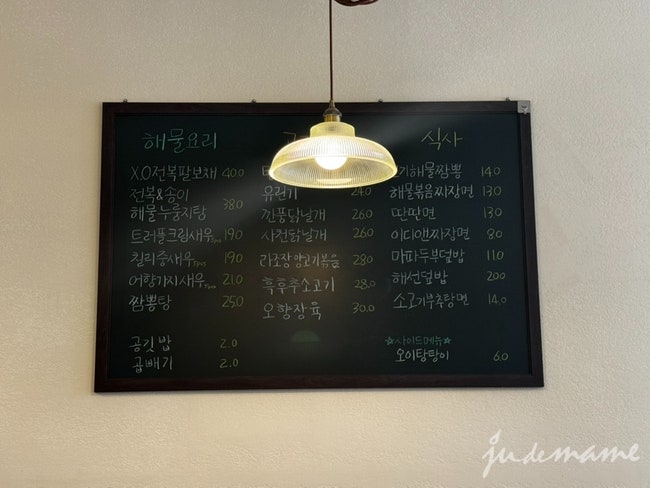 해물요리
X.O전복팔보채 40.0
전복&송이
해물누룽지탕 38.0
트러플크림새우 5pcs 19.0
칠리중새우 5pcs 19.0
어향가지새우 7pcs 21.0
짬뽕탕 25.0
공깃밥 2.0
곱빼기 2.0
유린기 24.0
깐풍닭날개 26.0
사천닭날개 26.0
라조장양고기볶음 28.0
흑후추소고기 28.0
오향장육 30.0
식사
고기해물짬뽕 14.0
해물볶음짜장면 13.0
딴딴면 13.0
이디앤짜장면 8.0
마파두부덮밥 11.0
해선덮밥 20.0
소고기부추탕면 14.0
☆사이드메뉴☆
오이탕탕이 6.0
judemame